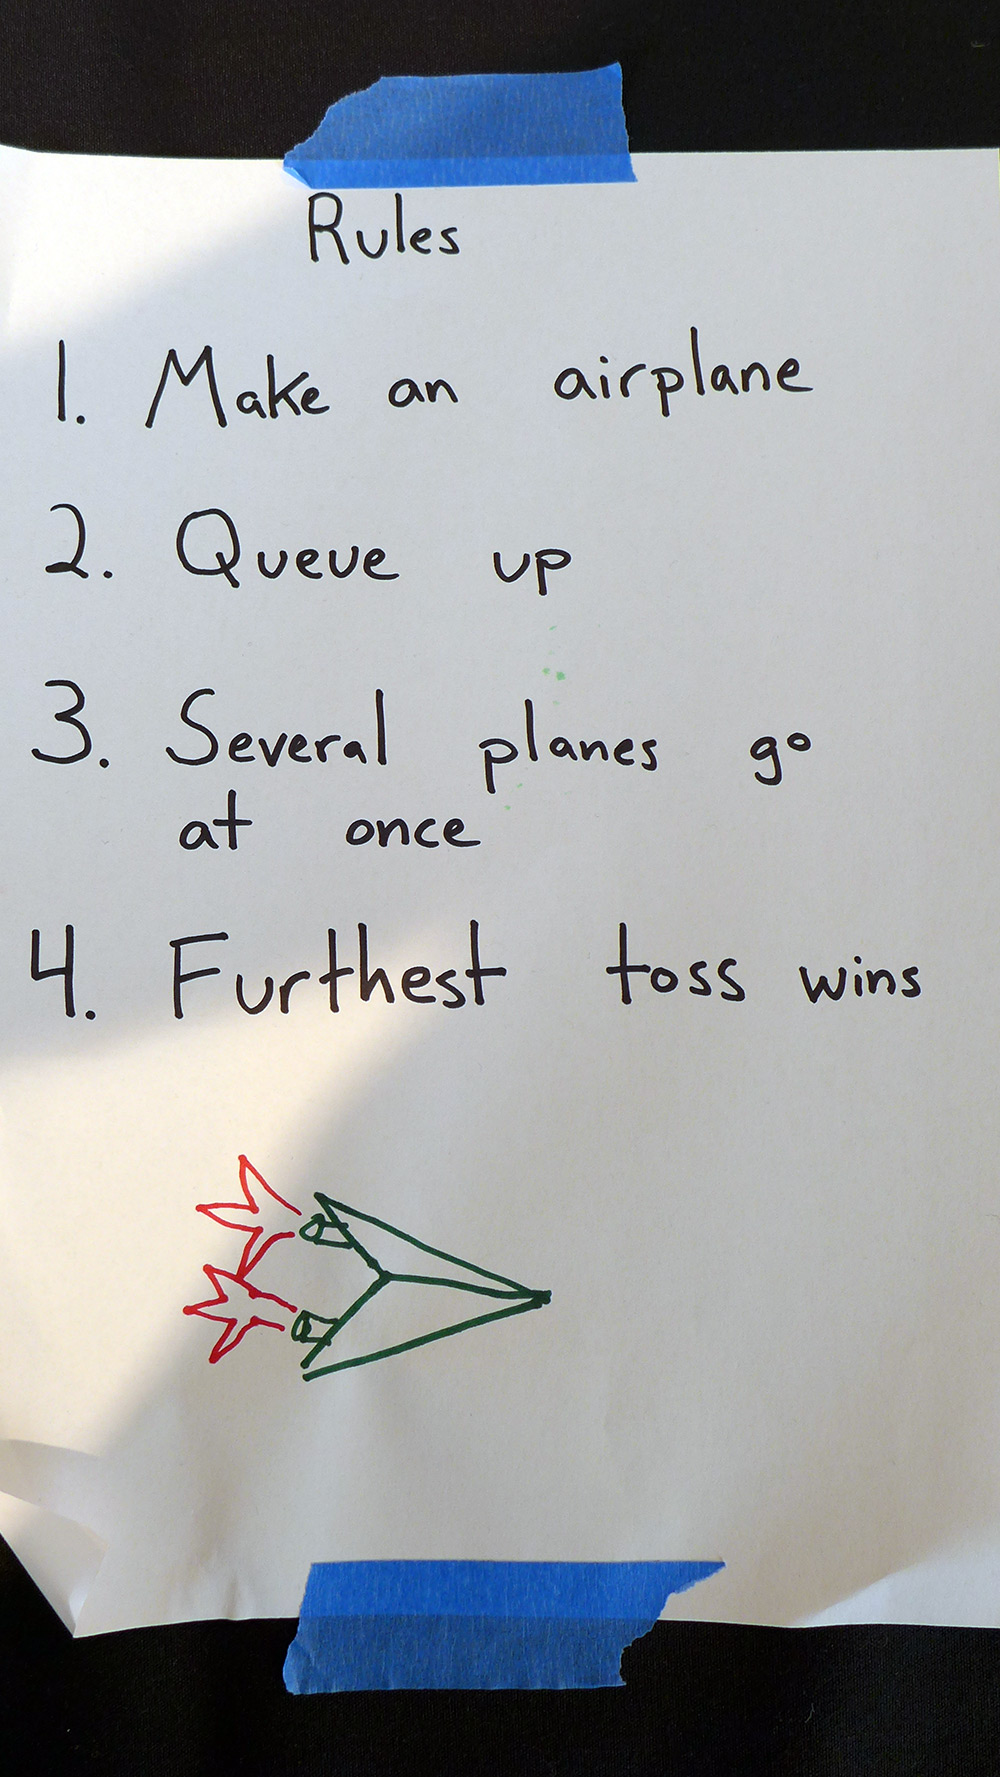 Rules
1. Make an airplane
2. Queue up
3. Several planes go
at once
4. Furthest toss wins